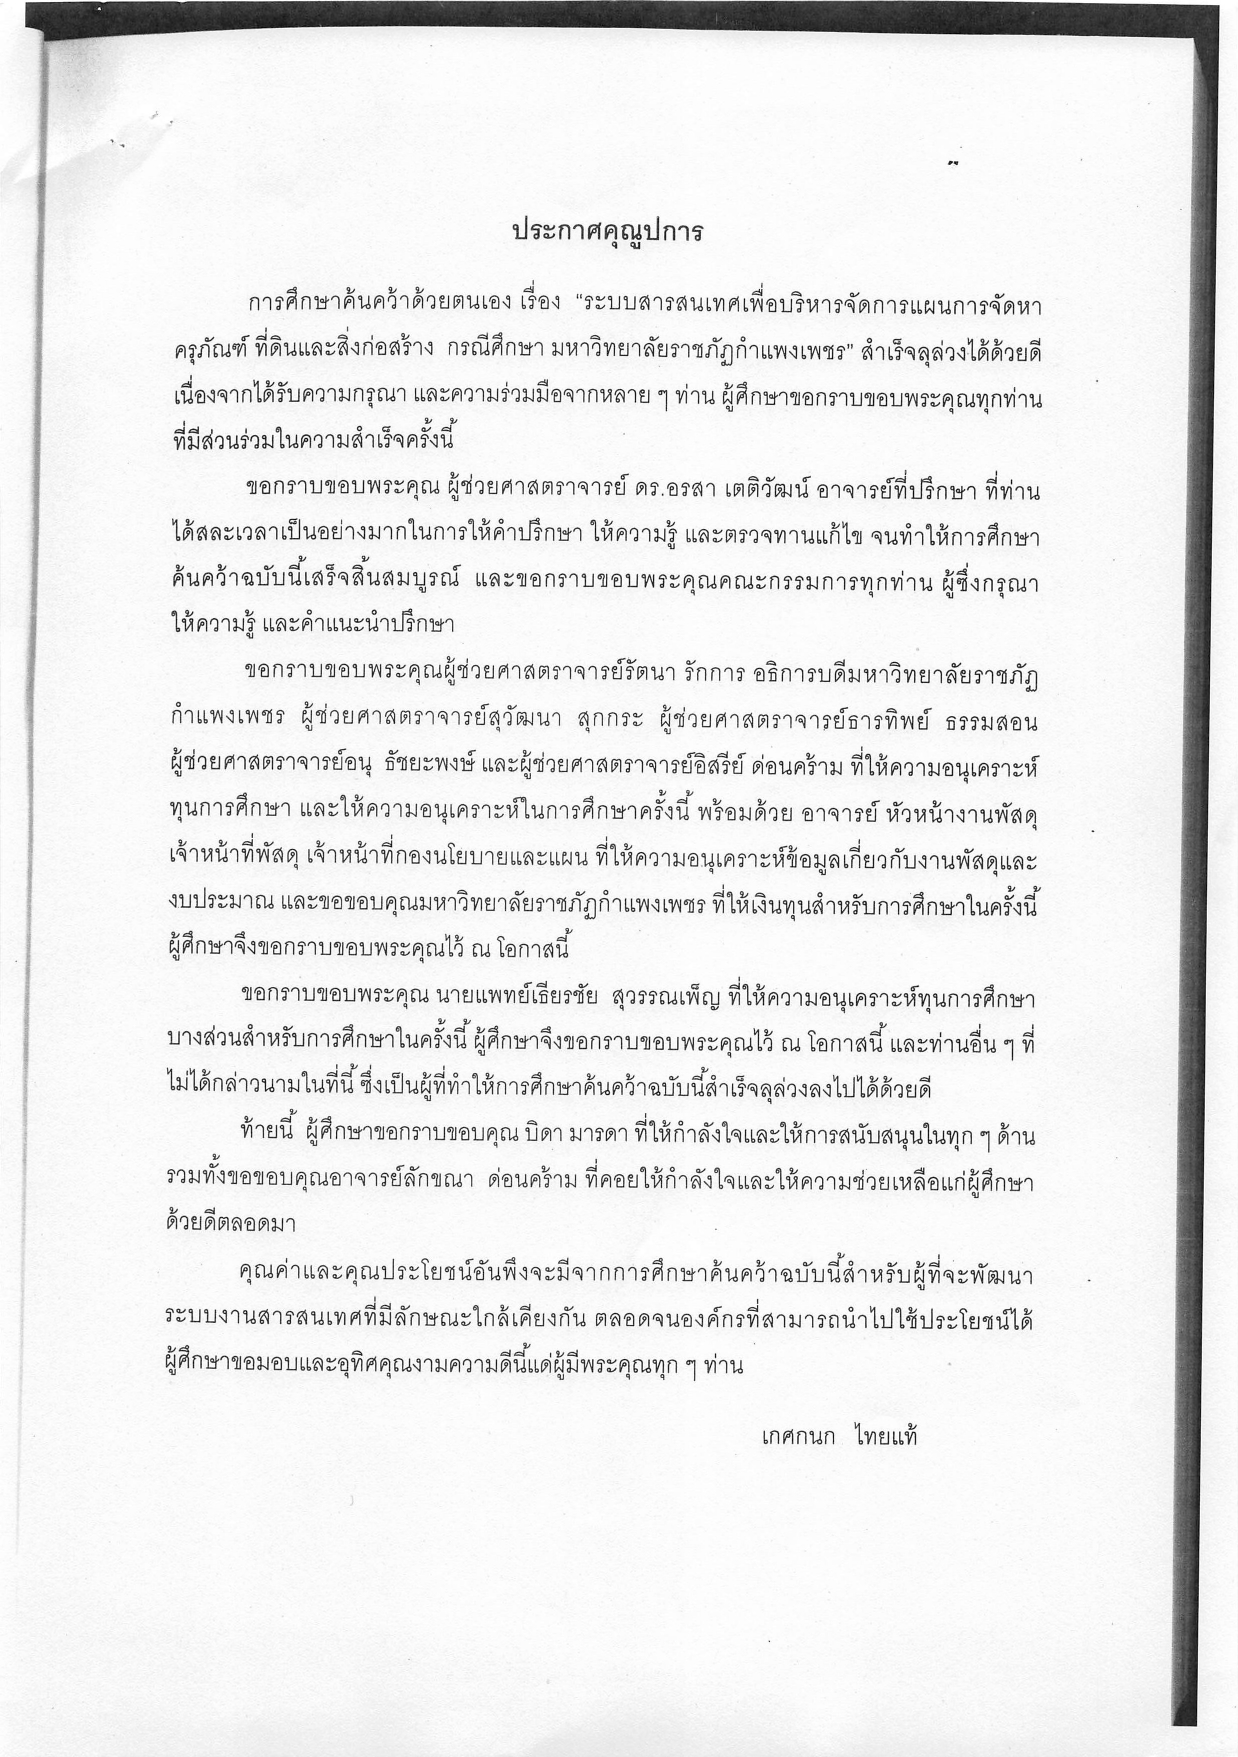 ประกาศคุณูปการ
การศึกษาค้นคว้าด้วยตนเอง เรื่อง "ระบบสารสนเทศเพื่อบริหารจัดการแผนการจัดหา
ครุภัณฑ์ ที่ดินและสิ่งก่อสร้าง กรณีศึกษา มหาวิทยาลัยราชภัฏกำแพงเพชร" สำเร็จลุล่วงได้ด้วยดี
เนื่องจากได้รับความกรุณา และความร่วมมือจากหลาย ๆ ท่าน ผู้ศึกษาขอกราบขอบพระคุณทุกท่าน
ที่มีส่วนร่วมในความสำเร็จครั้งนี้
ขอกราบขอบพระคุณ ผู้ช่วยศาสตราจารย์ ดร.อรสา เตติวัฒน์ อาจารย์ที่ปรึกษา ที่ท่าน
ได้สละเวลาเป็นอย่างมากในการให้คำปรึกษา ให้ความรู้ และตรวจทานแก้ไข จนทำให้การศึกษา
ค้นคว้าฉบับนี้เสร็จสิ้นสมบูรณ์ และขอกราบขอบพระคุณคณะกรรมการทุกท่าน ผู้ซึ่งกรุณา
ให้ความรู้ และคำแนะนำปรึกษา
ขอกราบขอบพระคุณผู้ช่วยศาสตราจารย์รัตนา รักการ อธิการบดีมหาวิทยาลัยราชภัฏ
กำแพงเพชร ผู้ช่วยศาสตราจารย์สุวัฒนา สุกกระ ผู้ช่วยศาสตราจารย์ธารทิพย์ ธรรมสอน
ผู้ช่วยศาสตราจารย์อนุ ธัชยะพงษ์ และผู้ช่วยศาสตราจารย์อิสรีย์ ด่อนคร้าม ที่ให้ความอนุเคราะห์
ทุนการศึกษา และให้ความอนุเคราะห์ในการศึกษาครั้งนี้ พร้อมด้วย อาจารย์ หัวหน้างานพัสดุ
เจ้าหน้าที่พัสดุ เจ้าหน้าที่กองนโยบายและแผน ที่ให้ความอนุเคราะห์ข้อมูลเกี่ยวกับงานพัสดุและ
งบประมาณ และขอขอบคุณมหาวิทยาลัยราชภัฏกำแพงเพชร ที่ให้เงินทุนสำหรับการศึกษาในครั้งนี้
ผู้ศึกษาจึงขอกราบขอบพระคุณไว้ ณ โอกาสนี้
ขอกราบขอบพระคุณ นายแพทย์เธียรชัย สุวรรณเพ็ญ ที่ให้ความอนุเคราะห์ทุนการศึกษา
บางส่วนสำหรับการศึกษาในครั้งนี้ ผู้ศึกษาจึงขอกราบขอบพระคุณไว้ ณ โอกาสนี้ และท่านอื่น ๆ ที่
ไม่ได้กล่าวนามในที่นี้ ซึ่งเป็นผู้ที่ทำให้การศึกษาค้นคว้าฉบับนี้สำเร็จลุล่วงลงไปได้ด้วยดี
ท้ายนี้ ผู้ศึกษาขอกราบขอบคุณ บิดา มารดา ที่ให้กำลังใจและให้การสนับสนุนในทุก ๆ ด้าน
รวมทั้งขอขอบคุณอาจารย์ลักขณา ด่อนคร้าม ที่คอยให้กำลังใจและให้ความช่วยเหลือแก่ผู้ศึกษา
ด้วยดีตลอดมา
คุณค่าและคุณประโยชน์อันพึงจะมีจากการศึกษาค้นคว้าฉบับนี้สำหรับผู้ที่จะพัฒนา
ระบบงานสารสนเทศที่มีลักษณะใกล้เคียงกัน ตลอดจนองค์กรที่สามารถนำไปใช้ประโยชน์ได้
ผู้ศึกษาขอมอบและอุทิศคุณงามความดีนี้แด่ผู้มีพระคุณทุก ๆ ท่าน
เกศกนก ไทยแท้